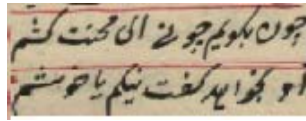 چون بگویم چونی الی محنت کشم
او بخواهد گفت نیکم یا خوشم